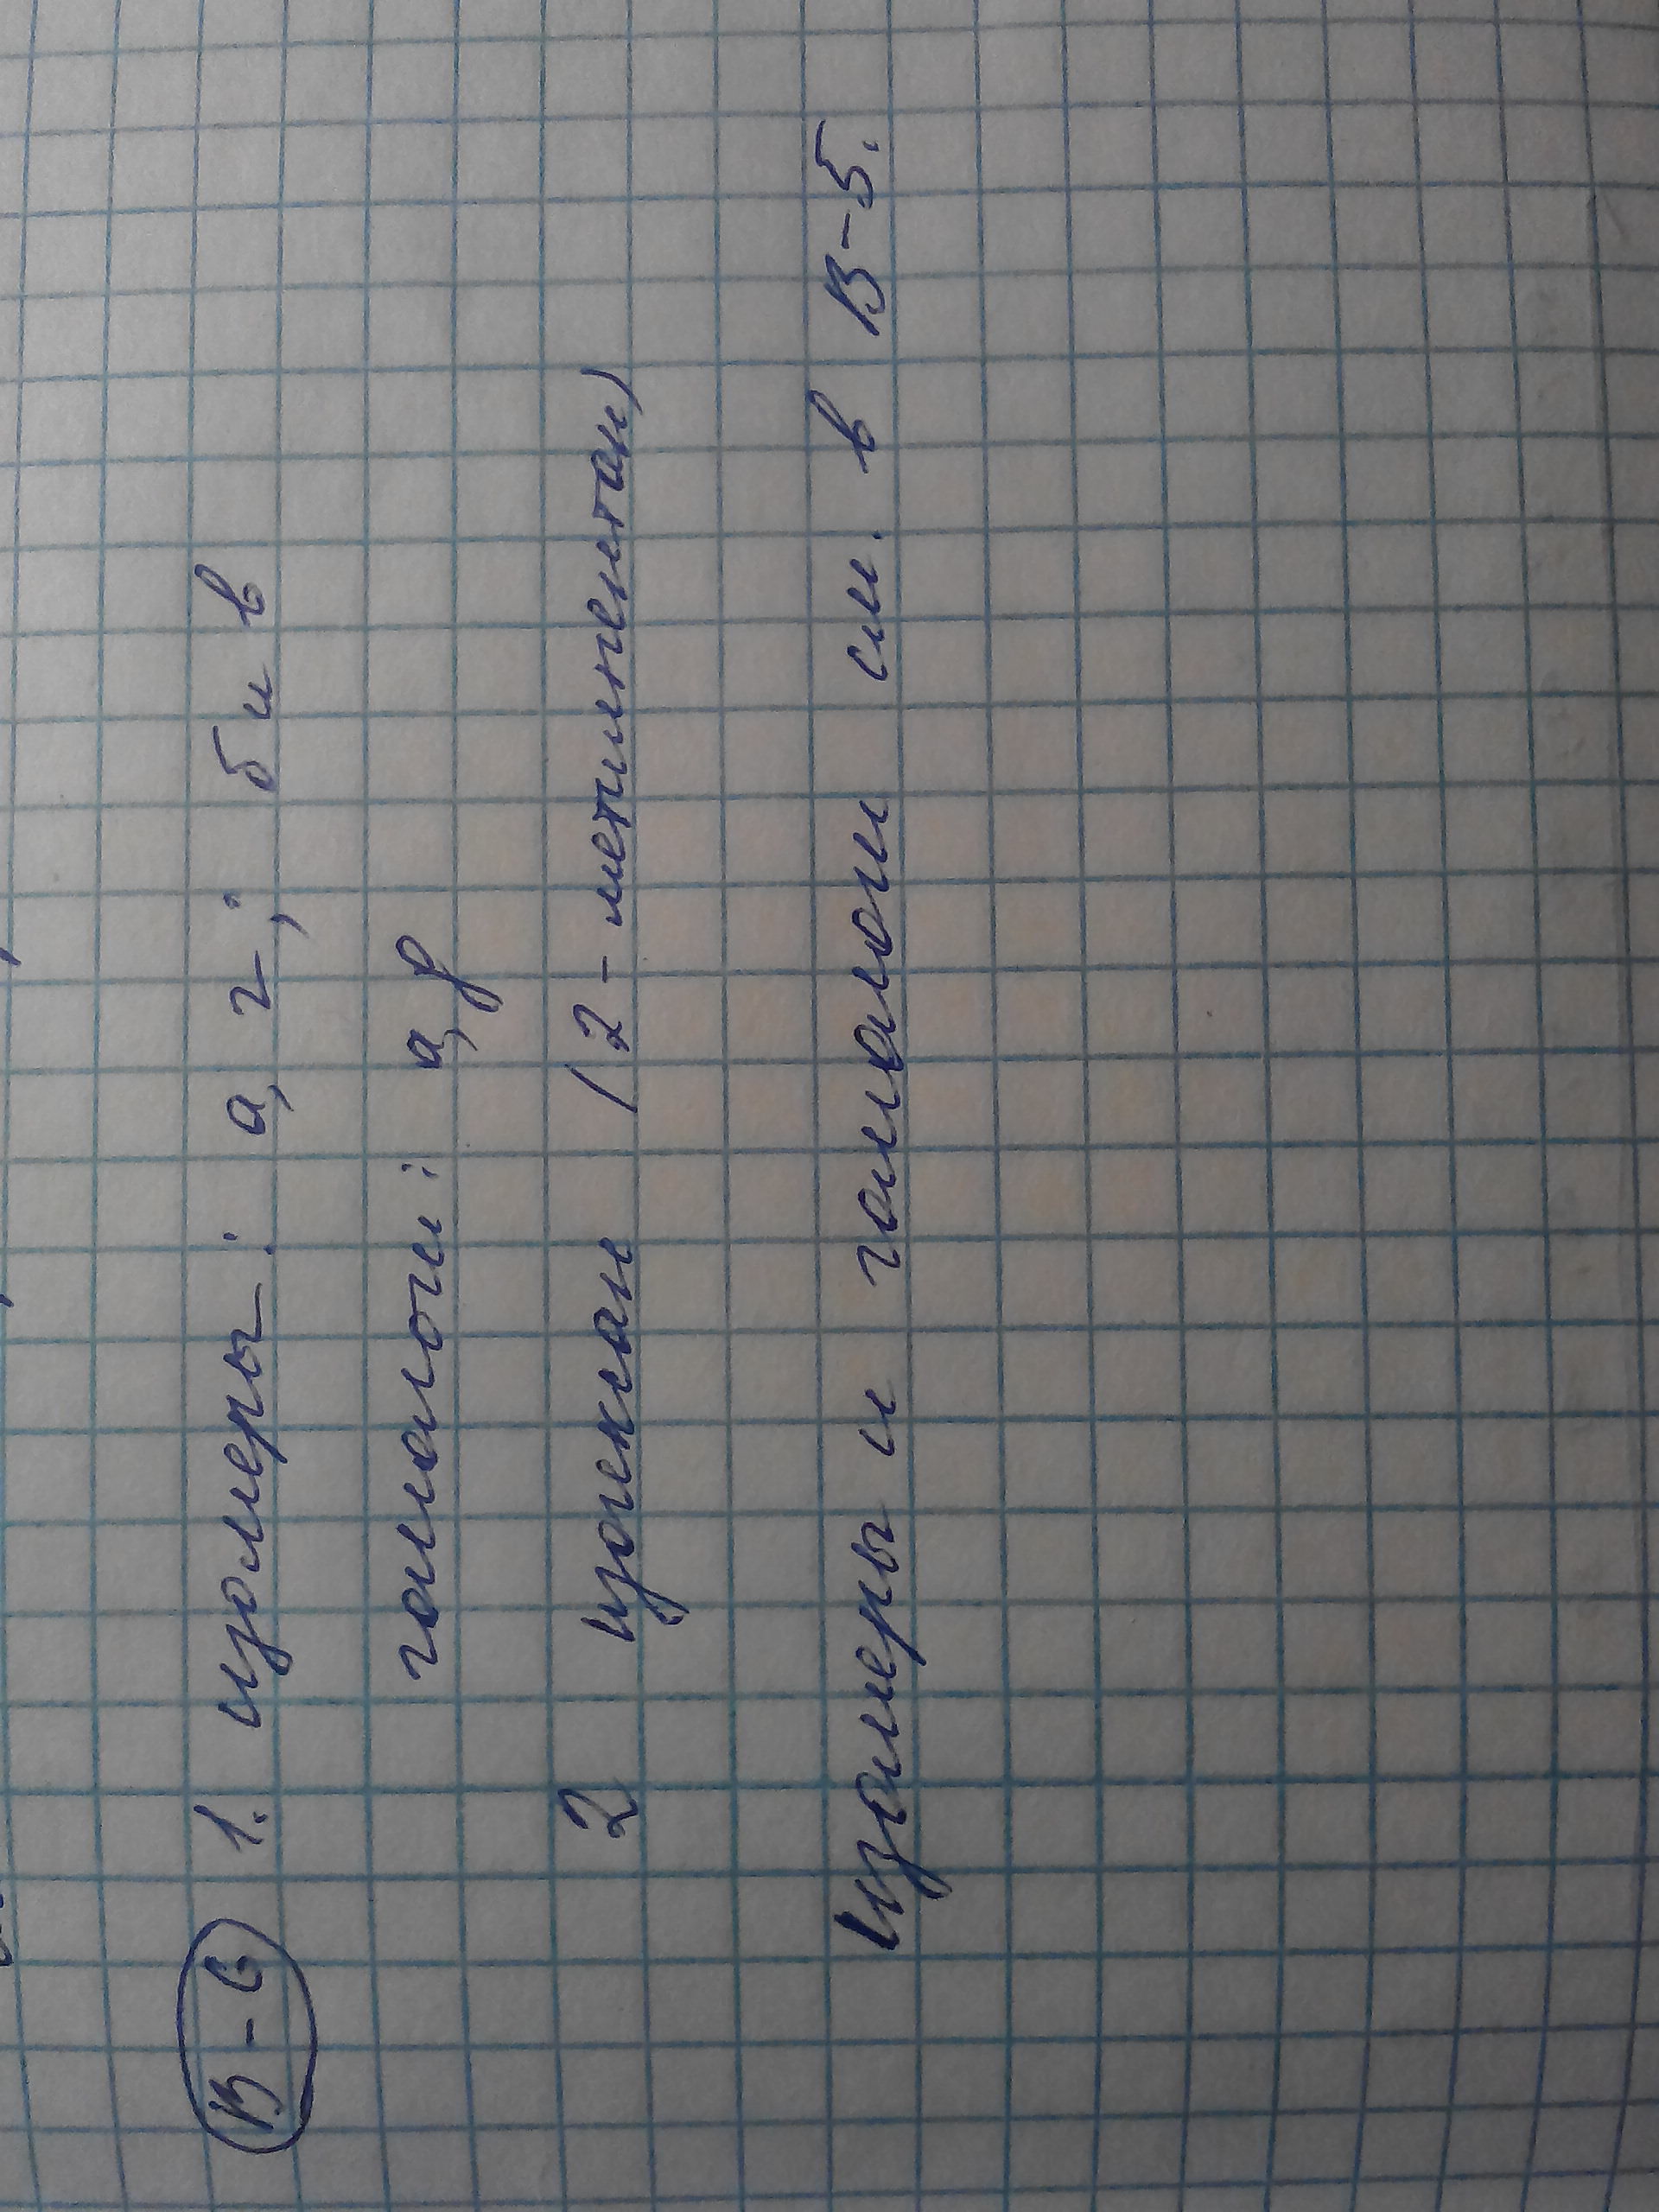 В-6 1. изомеры: а, г; б и в
гомологи: а, д
2 изогексан (2-метилпентан)
Изомеры и гомологи см. в В-5.